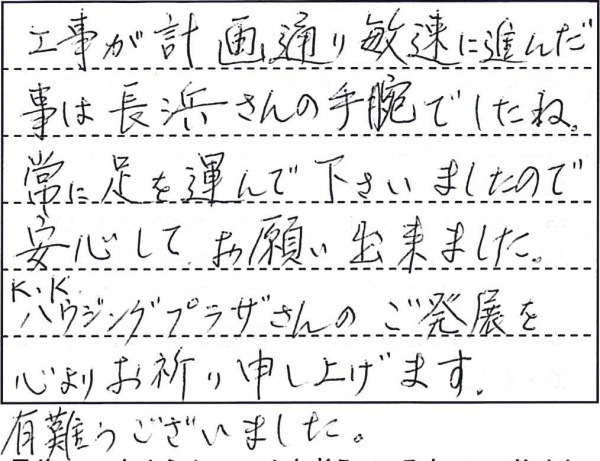 工事が計画通り敏速に進んだ
事は長浜さんの手腕でしたね。
常に足を運んで下さいましたので
安心してお願い出来ました。
K.K.
ハウジングプラザさんのご発展を
心よりお祈り申し上げます。
有難うございました。